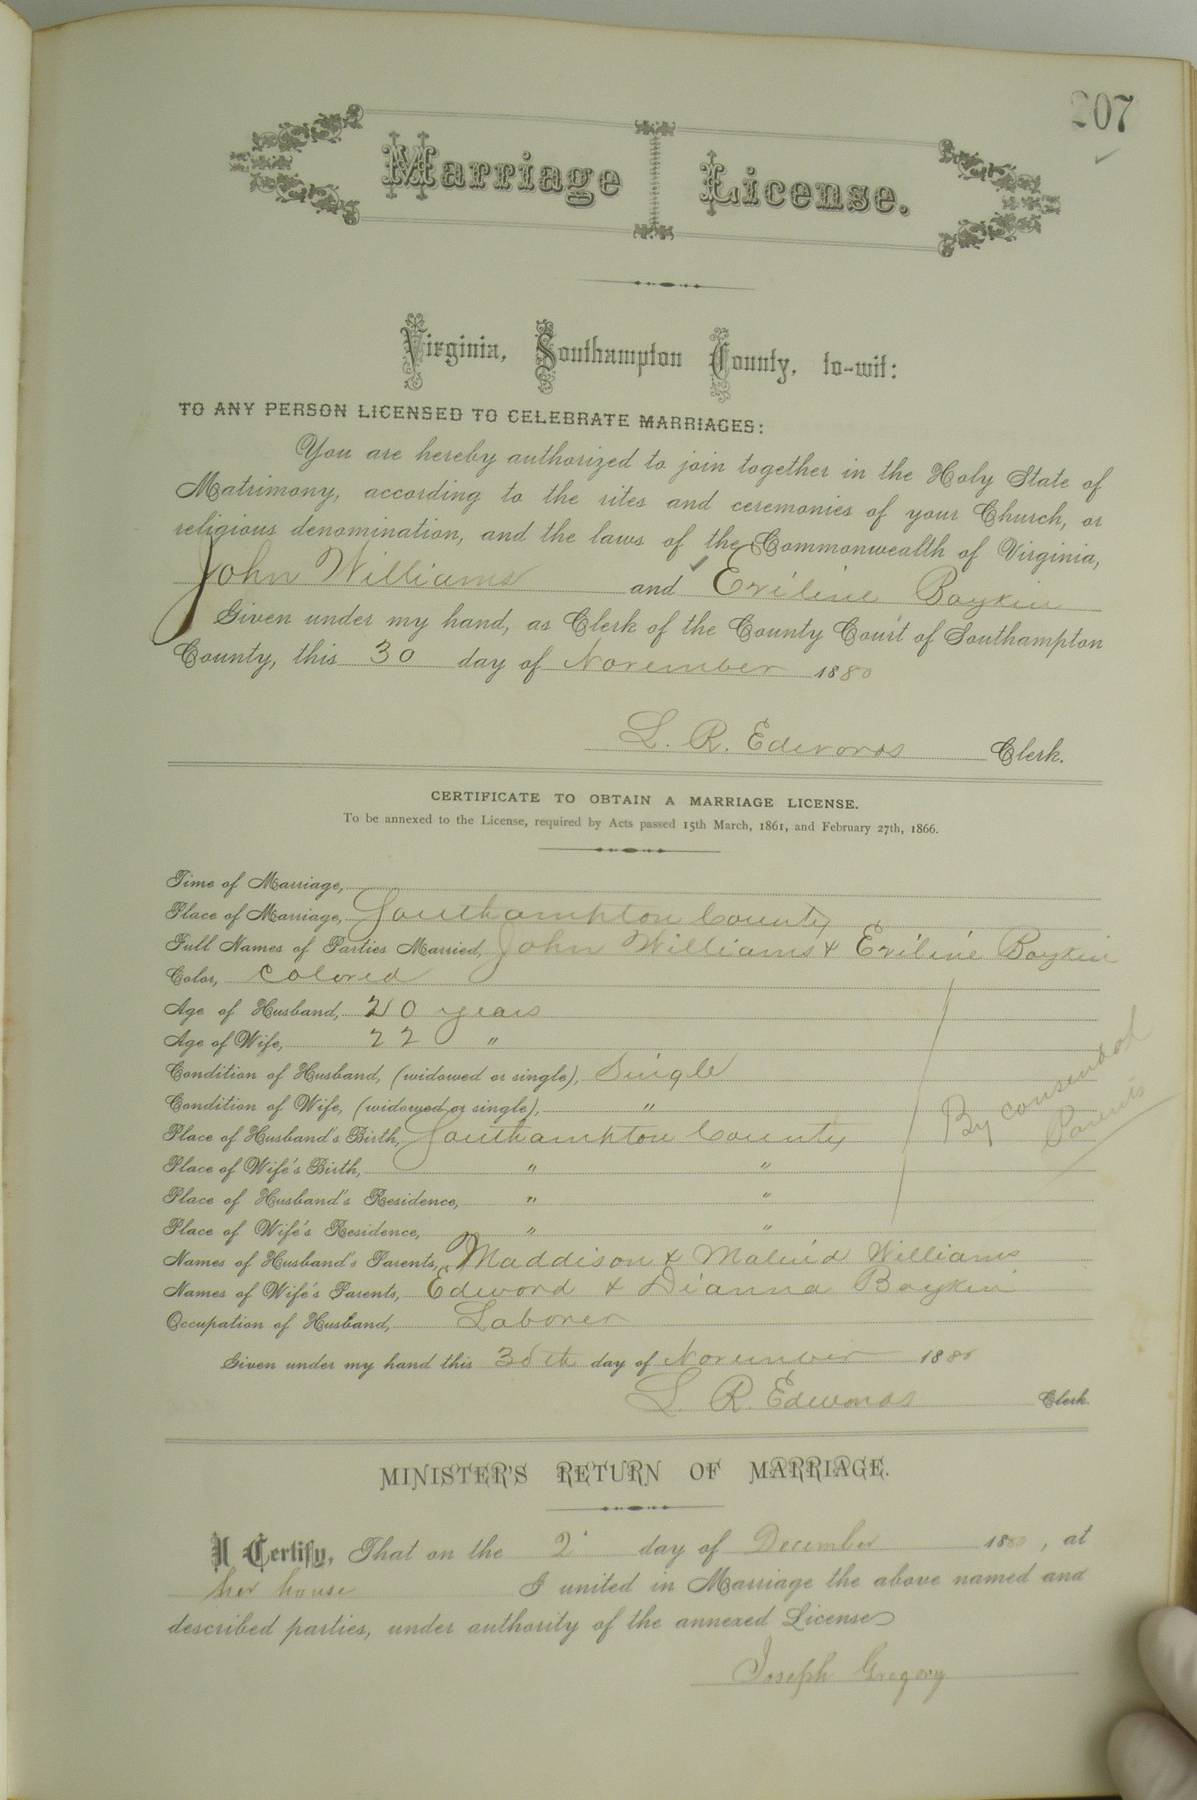 207
Marriage License.
Virginia, Southampton County, to-wit:
TO ANY PERSON LICENSED TO CELEBRATE MARRIAGES:
You are hereby authorized to join together in the Holy State of
Matrimony, according to the rites and ceremonies of your Church, or
religious denomination, and the laws of the Commonwealth of Virginia,
John Williams and Exiline Boykin
Given under my hand, as Clerk of the County Court of Southampton
County, this 30 day of November 1880
L. R. Edwards Clerk.
CERTIFICATE TO OBTAIN A MARRIAGE LICENSE.
To be annexed to the License, required by Acts passed 15th March, 1861, and February 27th, 1866.
Time of Marriage,
Place of Marriage, Southampton County
Full Names of Parties Married, John Williams & Exiline Boykin
Color, Colored
Age of Husband, 20 years
Age of Wife, 22 "
Condition of Husband, (widowed or single), Single
Condition of Wife, (widowed or single), "
By consent of
Parents
Place of Husband's Birth, Southampton County
Place of Wife's Birth, " "
Place of Husband's Residence, " "
Place of Wife's Residence, " "
Names of Husband's Parents, Maddison & Malind Williams
Names of Wife's Parents, Edword & Dianna Boykin
Occupation of Husband, Laborer
Given under my hand this 30th day of November 1880
L. R. Edwards Clerk.
MINISTER'S RETURN OF MARRIAGE.
I Certify, That on the 2 day of December 1880, at
her house I united in Marriage the above named and
described parties, under authority of the annexed License
Joseph Gregory